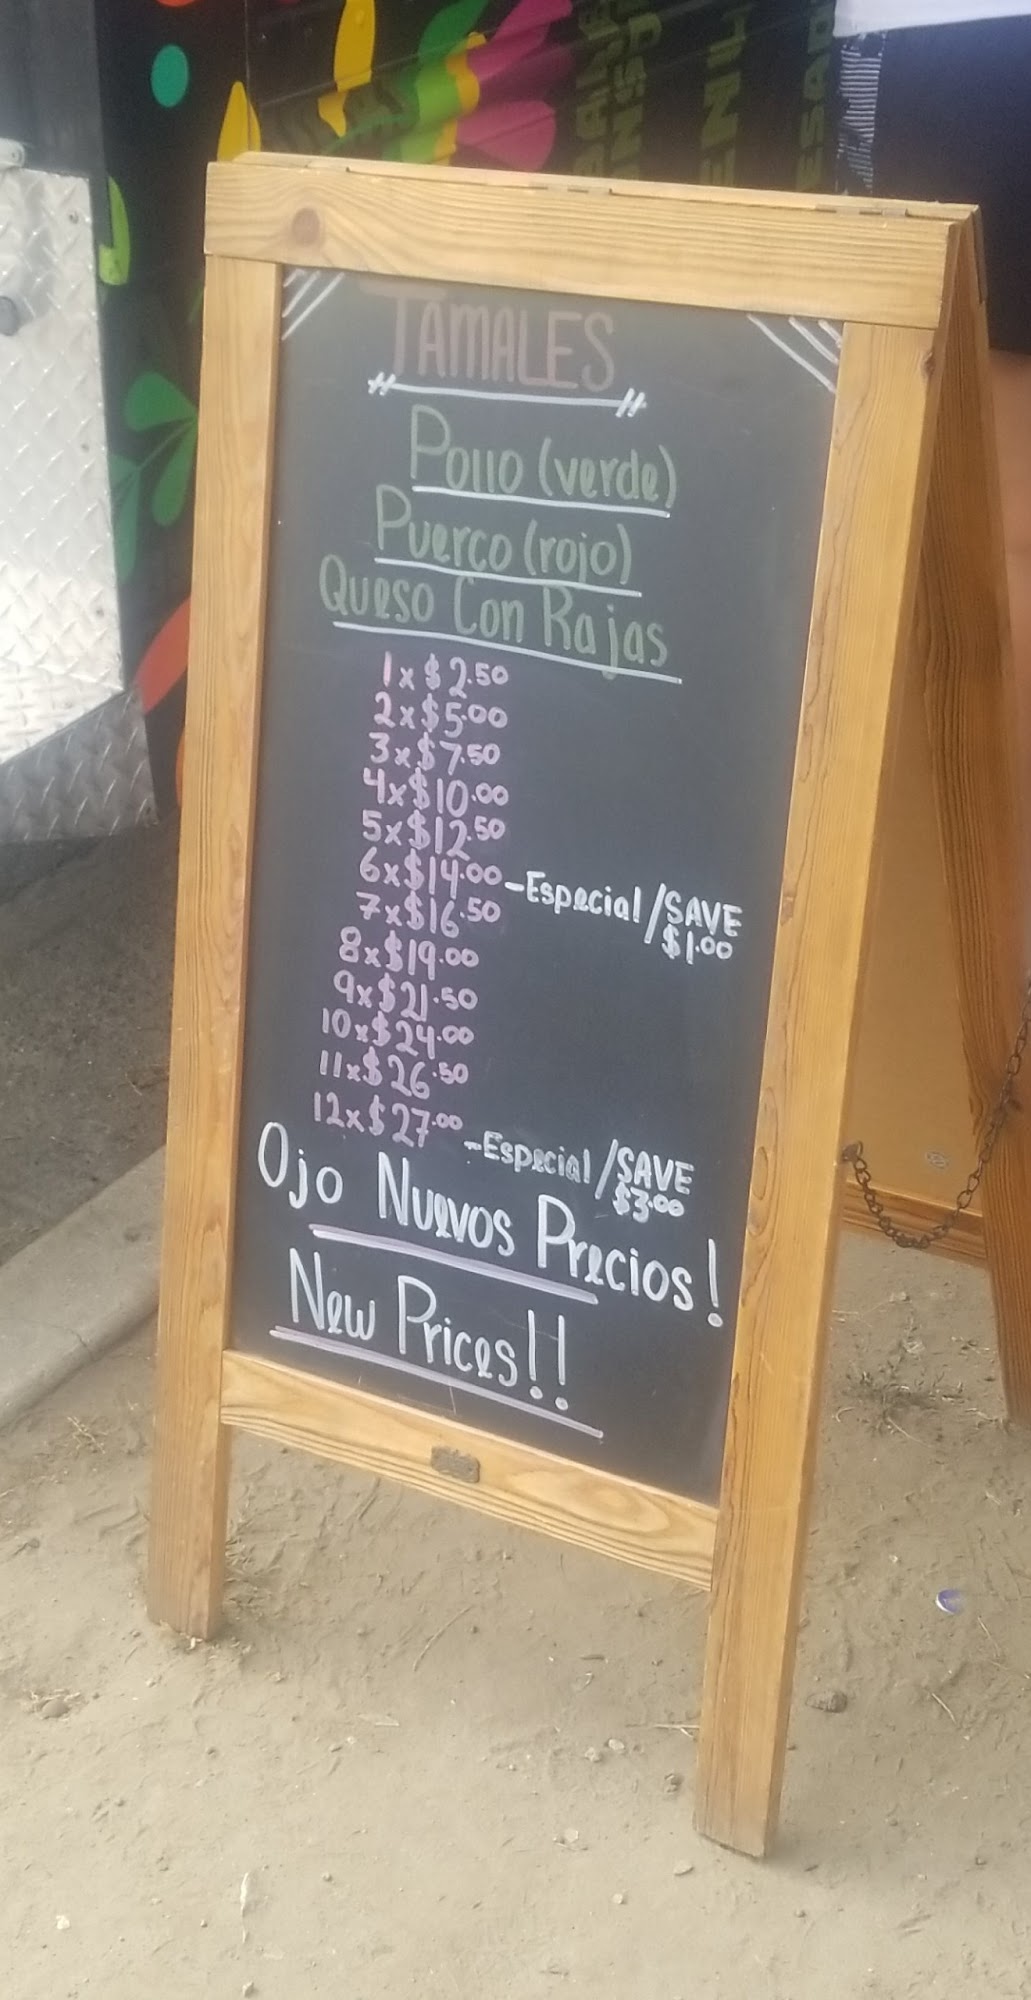 TAMALES
Pollo (verde)
Puerco (rojo)
Queso Con Rajas
1 x $2.50
2 x $5.00
3 x $7.50
4 x $10.00
5 x $12.50
6 x $14.00 - Especial / SAVE $1.00
7 x $16.50
8 x $19.00
9 x $21.50
10 x $24.00
11 x $26.50
12 x $27.00 - Especial / SAVE $3.00
Ojo Nuevos Precios!
New Prices!!